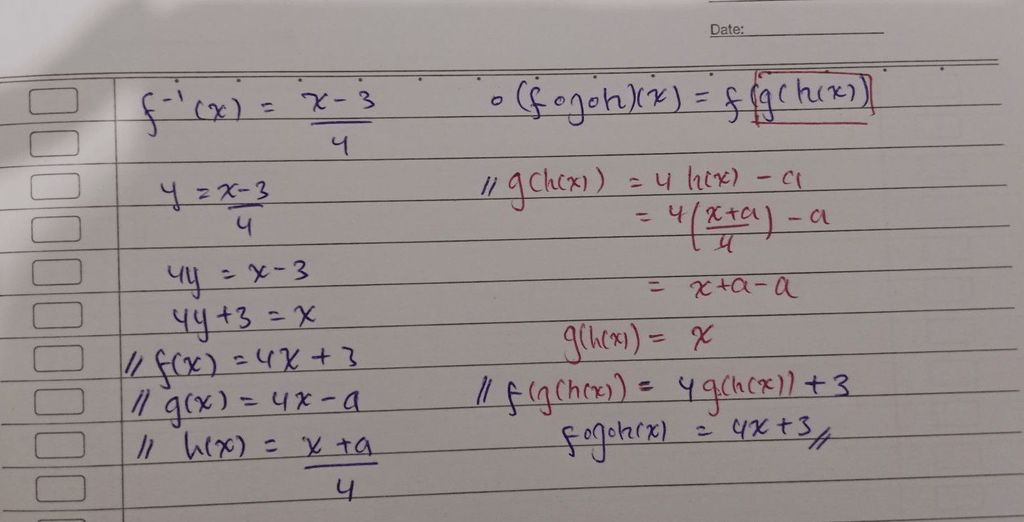 Date:
f⁻¹(x) = (x-3)/4
y = (x-3)/4
4y = x-3
4y+3 = x
// f(x) = 4x+3
// g(x) = 4x-a
// h(x) = (x+a)/4
o (fogoh)(x) = f(g(h(x))
// g(h(x)) = 4 h(x) - a
= 4((x+a)/4) - a
= x+a-a
g(h(x)) = x
// f(g(h(x)) = 4g(h(x)) + 3
fogoh(x) = 4x+3 //